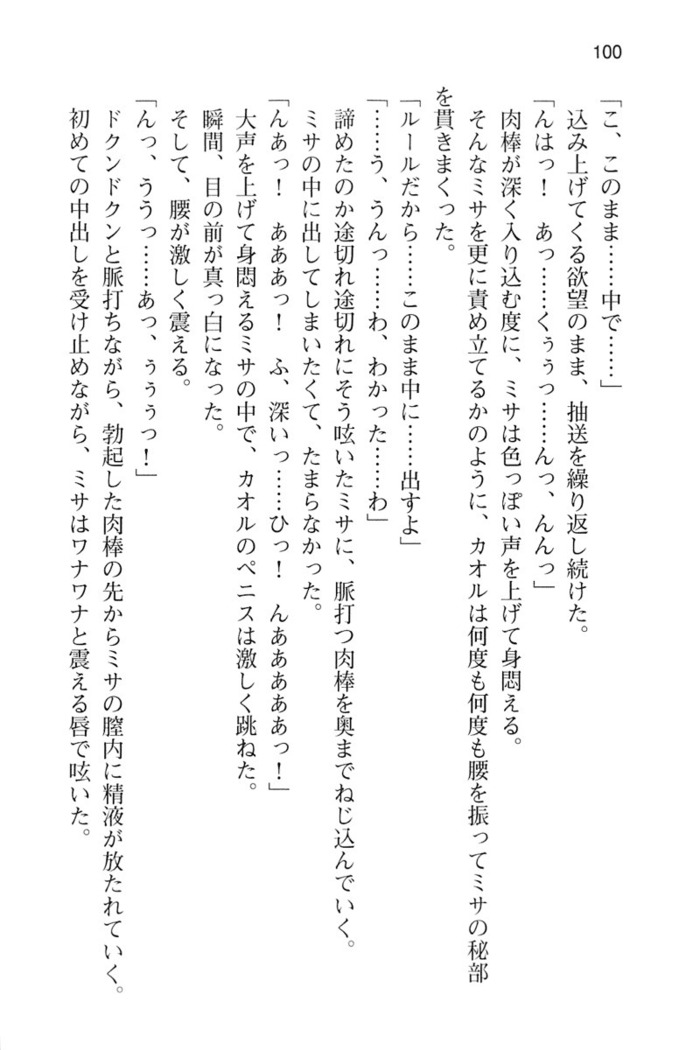 100
「こ、このまま……中で……」
込み上げてくる欲望のまま、抽送を繰り返し続けた。
「んはっ！　あっ……くぅぅっ……んっ、んんっ」
肉棒が深く入り込む度に、ミサは色っぽい声を上げて身悶える。
そんなミサを更に責め立てるかのように、カオルは何度も何度も腰を振ってミサの秘部
を貫きまくった。
「ルールだから……このまま中に……出すよ」
「……う、うんっ……わ、わかった……わ」
諦めたのか途切れ途切れにそう呟いたミサに、脈打つ肉棒を奥までねじ込んでいく。
ミサの中に出してしまいたくて、たまらなかった。
「んあっ！　あああっ！　ふ、深いっ……ひっ！　んああああぁっ！」
大声を上げて身悶えるミサの中で、カオルのペニスは激しく跳ねた。
瞬間、目の前が真っ白になった。
そして、腰が激しく震える。
「んっ、ううっ……あっ、ぅぅぅっ！」
ドクンドクンと脈打ちながら、勃起した肉棒の先からミサの膣内に精液が放たれていく。
初めての中出しを受け止めながら、ミサはワナワナと震える唇で呟いた。